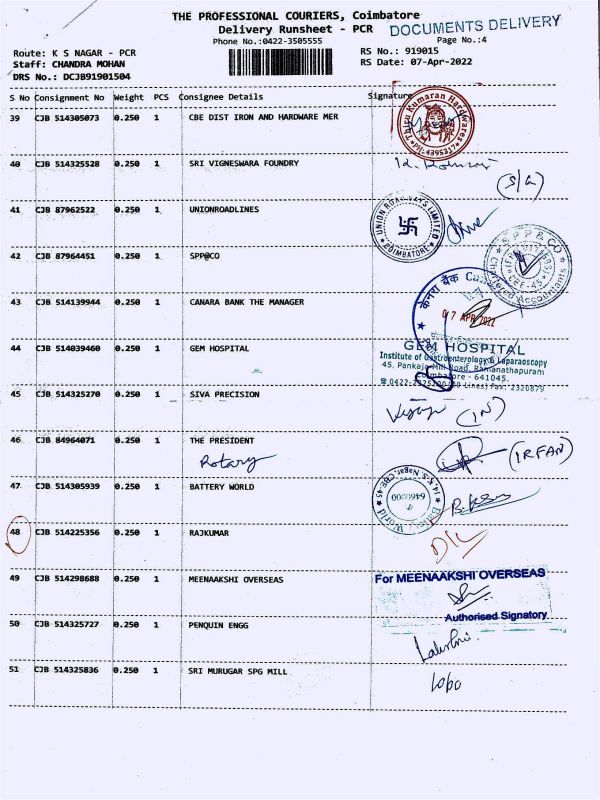 THE PROFESSIONAL COURIERS, Coimbatore
Delivery Runsheet - PCR
DOCUMENTS DELIVERY
Phone No.:0422-3505555
Page No.:4
Route: K S NAGAR - PCR
RS No.: 919015
Staff: CHANDRA MOHAN
RS Date: 07-Apr-2022
DRS No.: DCJB91901504
S No Consignment No Weight PCS Consignee Details Signature
39 CJB 514305073 0.250 1 CBE DIST IRON AND HARDWARE MER
Thiru Kumaran Hardwares
PH: 4395317
40 CJB 514325528 0.250 1 SRI VIGNESWARA FOUNDRY
41 CJB 87962522 0.250 1 UNIONROADLINES
UNION ROADWAYS LIMITED
COIMBATORE
42 CJB 87964451 0.250 1 SPP@CO
S P P & CO
CBE-45
Chartered Accountants
43 CJB 514139944 0.250 1 CANARA BANK THE MANAGER
केनरा बैंक
07 APR 2022
44 CJB 514039460 0.250 1 GEM HOSPITAL
GEM HOSPITAL
Institute of Gastroenterology & Laparoscopy
45, Pankaja Mill Road, Ramanathapuram
Coimbatore - 641045.
Lines) Fax: 2320879
45 CJB 514325270 0.250 1 SIVA PRECISION
(IN)
46 CJB 84964071 0.250 1 THE PRESIDENT
Rotary
(IRFAN)
47 CJB 514305939 0.250 1 BATTERY WORLD
14, K.S. Nagar, CBE-45
World
48 CJB 514225356 0.250 1 RAJKUMAR
D/L
49 CJB 514298688 0.250 1 MEENAAKSHI OVERSEAS
For MEENAAKSHI OVERSEAS
Authorised Signatory
50 CJB 514325727 0.250 1 PENQUIN ENGG
Lakshmi
51 CJB 514325836 0.250 1 SRI MURUGAR SPG MILL
lobo